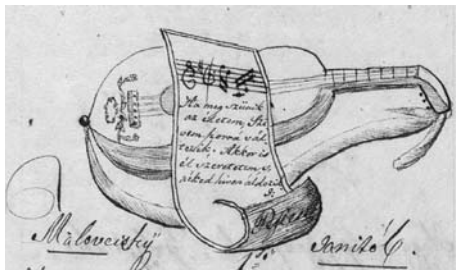 Ha meg szünik
az életem, Szi
vem porrá vál
tozik. Akkor is
él szeretetem s
néked híven áldozik
Malovetsky Janitól.